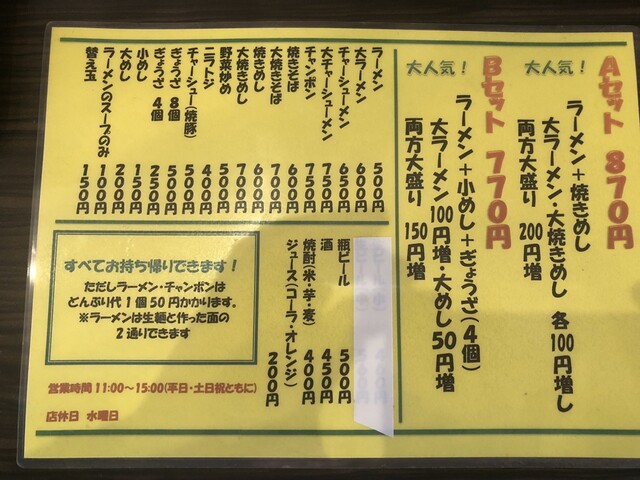 Aセット 870円
大人気！
ラーメン＋焼きめし
大ラーメン・大焼きめし 各100円増し
両方大盛り 200円増
Bセット 770円
大人気！
ラーメン＋小めし＋ぎょうざ(4個)
大ラーメン100円増・大めし50円増
両方大盛り 150円増
ラーメン 500円
大ラーメン 600円
チャーシューメン 650円
大チャーシューメン 750円
チャンポン 750円
焼きそば 600円
大焼きそば 700円
焼きめし 600円
大焼きめし 700円
野菜炒め 500円
ニラトジ 400円
チャーシュー(焼豚) 500円
ぎょうざ 8個 500円
ぎょうざ 4個 250円
小めし 150円
大めし 200円
ラーメンのスープのみ 100円
替え玉 150円
瓶ビール 500円
酒 450円
焼酎(米・芋・麦) 400円
ジュース(コーラ・オレンジ) 200円
すべてお持ち帰りできます！
ただしラーメン・チャンポンは
どんぶり代1個50円かかります。
※ラーメンは生麺と作った面の
2通りできます
営業時間 11:00～15:00(平日・土日祝ともに)
店休日 水曜日